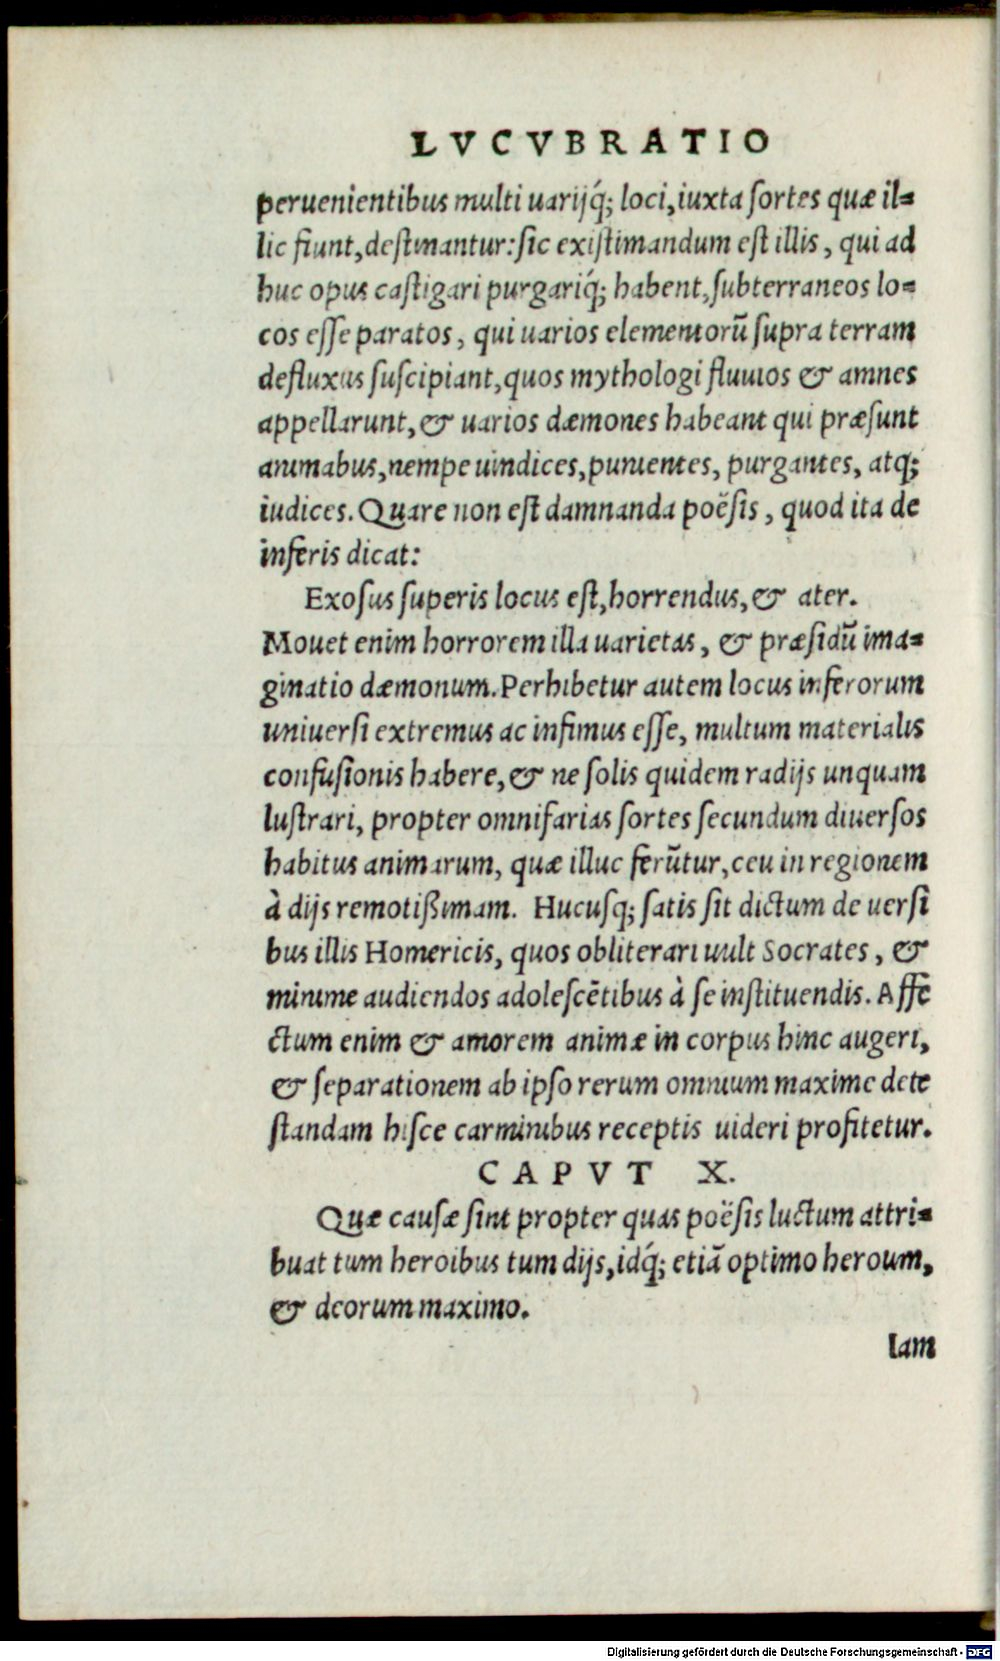 LVCVBRATIO
peruenientibus multi uarijq́; loci, iuxta sortes quæ il=
lic fiunt, destinantur: sic existimandum est illis, qui ad
huc opus castigari purgariq́; habent, subterraneos lo=
cos esse paratos, qui uarios elementorũ supra terram
defluxus suscipiant, quos mythologi fluuios & amnes
appellarunt, & uarios dæmones habeant qui præsunt
animabus, nempe uindices, punientes, purgantes, atq;
iudices. Quare non est damnanda poësis, quod ita de
inferis dicat:
Exosus superis locus est, horrendus, & ater.
Mouet enim horrorem illa uarietas, & præsidũ ima=
ginatio dæmonum. Perhibetur autem locus inferorum
uniuersi extremus ac infimus esse, multum materialis
confusionis habere, & ne solis quidem radijs unquam
lustrari, propter omnifarias sortes secundum diuersos
habitus animarum, quæ illuc ferũtur, ceu in regionem
à dijs remotißimam. Hucusq; satis sit dictum de uersi
bus illis Homericis, quos obliterari uult Socrates, &
minime audiendos adolescẽtibus à se instituendis. Affe
ctum enim & amorem animæ in corpus hinc augeri,
& separationem ab ipso rerum omnium maxime dete
standam hisce carminibus receptis uideri profitetur.
CAPVT X.
Quæ causæ sint propter quas poësis luctum attri=
buat tum heroibus tum dijs, idq́; etiã optimo heroum,
& deorum maximo.
Iam
Digitalisierung gefördert durch die Deutsche Forschungsgemeinschaft - DFG